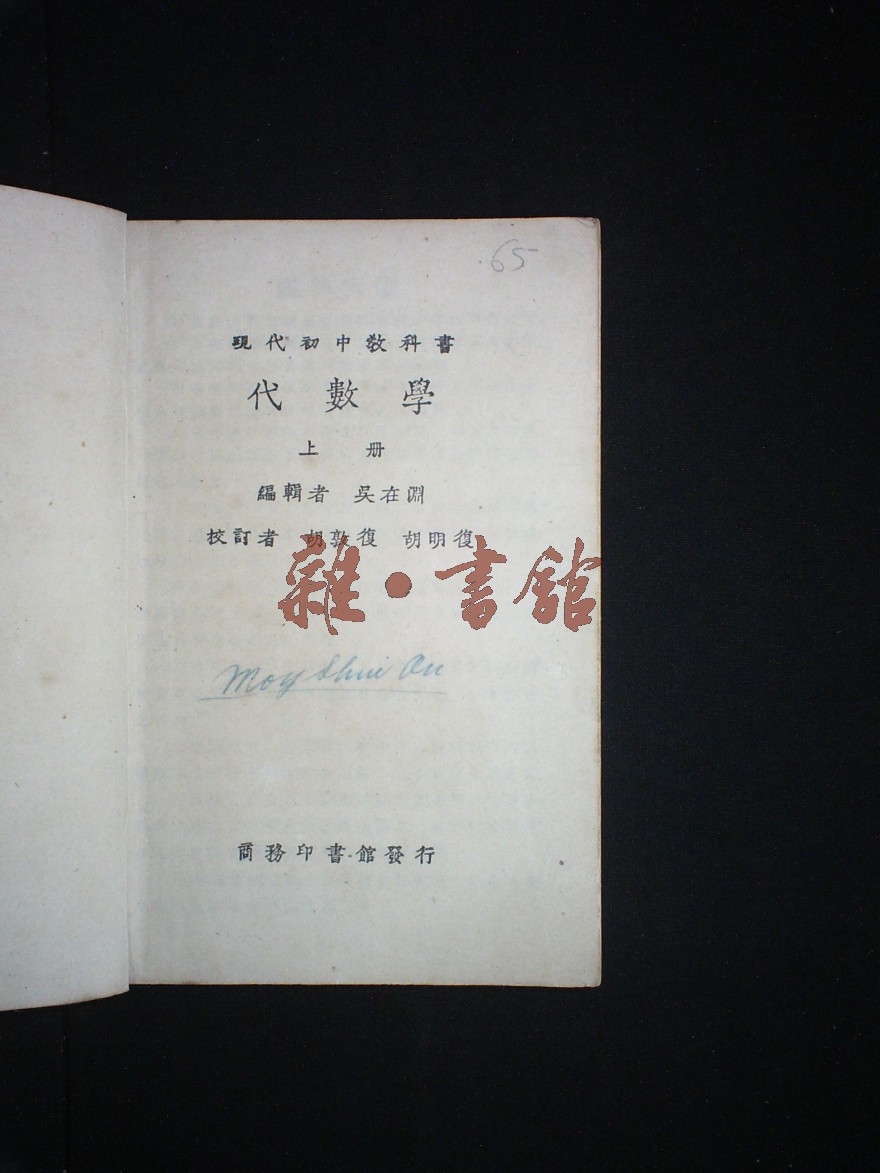 65
現代初中教科書
代數學
上冊
編輯者 吳在淵
校訂者 胡敦復 胡明復
雜·書館
Moy Shui On
商務印書館發行